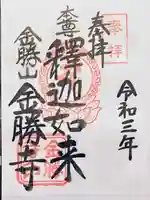 奉拝
奉拝
令和三年
本尊
釋迦如来
金勝山
金勝寺